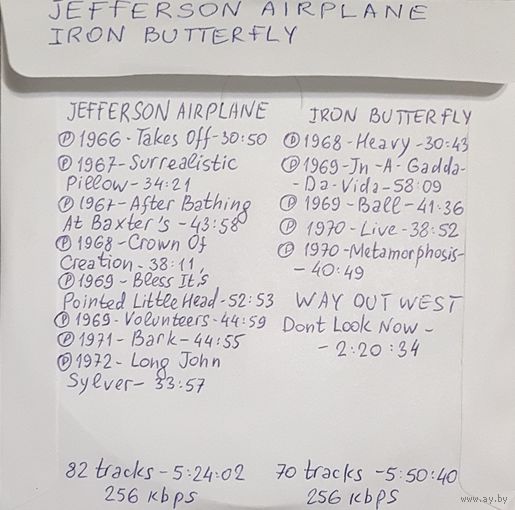 JEFFERSON AIRPLANE
IRON BUTTERFLY
JEFFERSON AIRPLANE
Ⓟ 1966-Takes Off-30:50
Ⓟ 1967-Surrealistic
Pillow-34:21
Ⓟ 1967-After Bathing
At Baxter's-43:58
Ⓟ 1968-Crown Of
Creation-38:11,
Ⓟ 1969-Bless It,s
Pointed Little Head-52:53
Ⓟ 1969-Volunteers-44:59
Ⓟ 1971-Bark-44:55
Ⓟ 1972-Long John
Sylver-33:57
82 tracks-5:24:02
256 kbps
IRON BUTTERFLY
Ⓟ 1968-Heavy-30:43
Ⓟ 1969-In-A-Gadda-
-Da-Vida-58:09
Ⓟ 1969-Ball-41:36
Ⓟ 1970-Live-38:52
Ⓟ 1970-Metamorphosis-
-40:49
WAY OUT WEST
Dont Look Now-
-2:20:34
70 tracks-5:50:40
256 kbps
www.ay.by